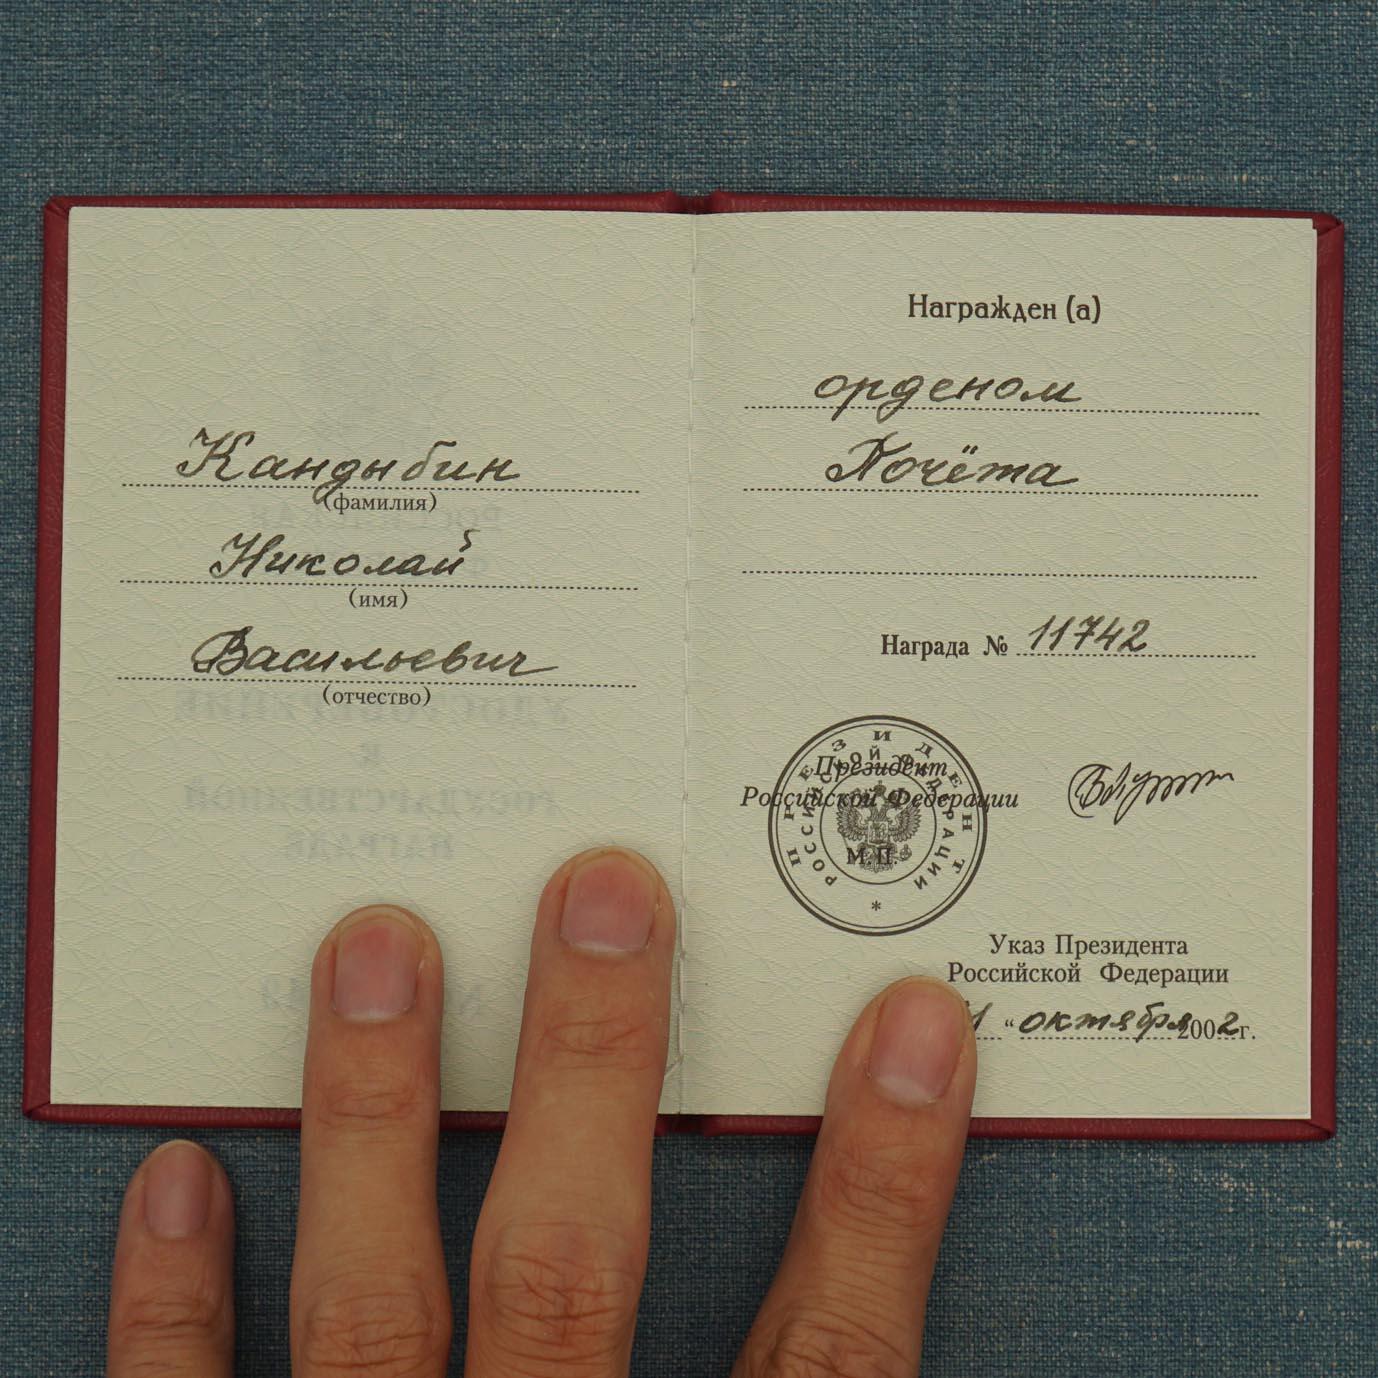 Кандыбин
(фамилия)
Николай
(имя)
Васильевич
(отчество)
Награжден (а)
орденом
Почёта
Награда № 11742
ПРЕЗИДЕНТ
РОССИЙСКОЙ ФЕДЕРАЦИИ
*
Президент
Российской Федерации
М.П.
Указ Президента
Российской Федерации
“ октября 2002 г.